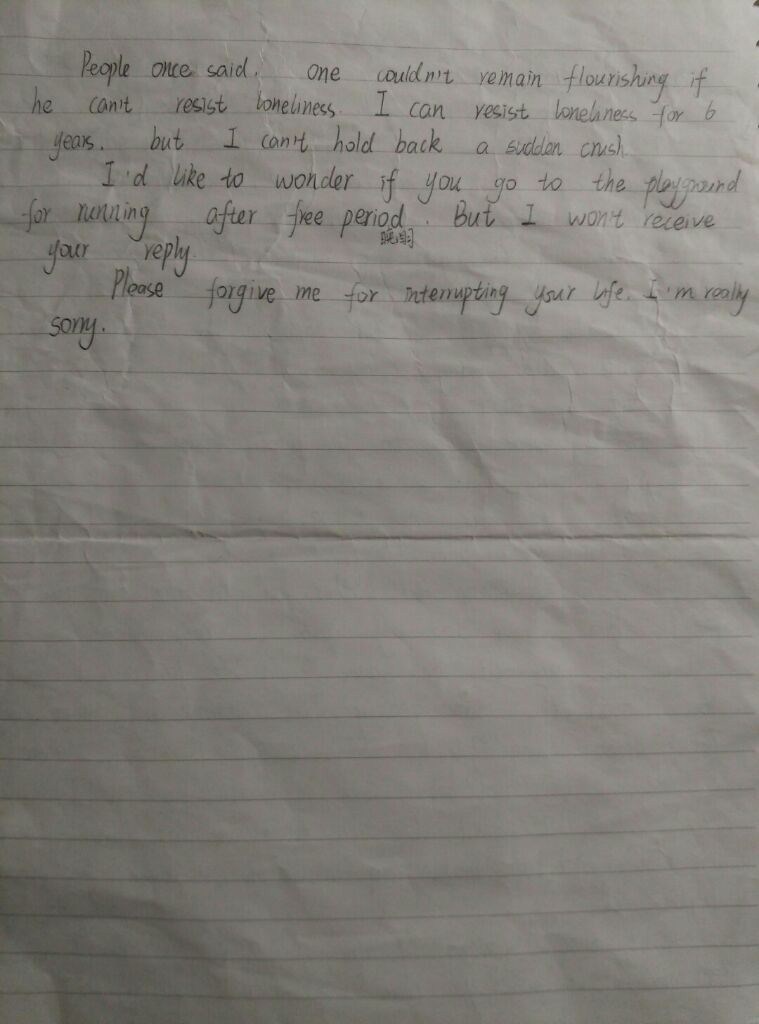 People once said. one couldn't remain flourishing if
he can't resist loneliness. I can resist loneliness for 6
years. but I can't hold back a sudden crush.
I'd like to wonder if you go to the playground
for running after free period. But I won't receive
晚自习
your reply.
Please forgive me for interrupting your life. I'm really
sorry.